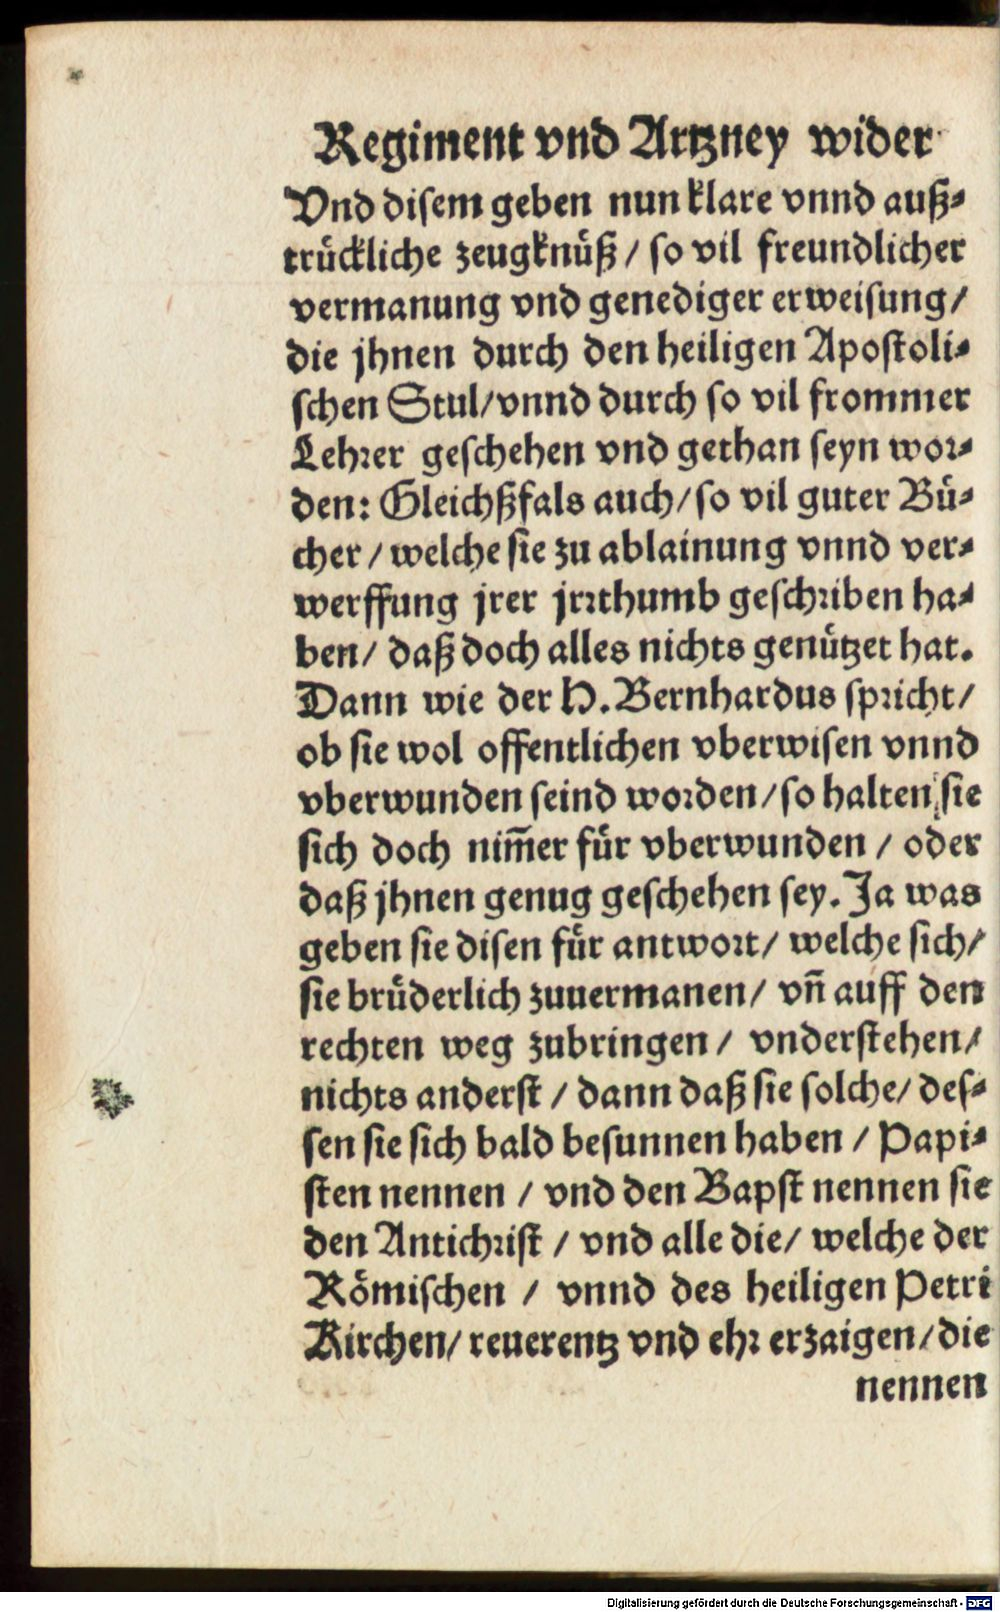 Regiment vnd Artzney wider
Vnd disem geben nun klare vnnd auß-
trückliche zeugknüß / so vil freundlicher
vermanung vnd genediger erweisung/
die jhnen durch den heiligen Apostoli-
schen Stul/vnnd durch so vil frommer
Lehrer geschehen vnd gethan seyn wor-
den: Gleichßfals auch/so vil guter Bü-
cher / welche sie zu ablainung vnnd ver-
werffung jrer jrrthumb geschriben ha-
ben/ daß doch alles nichts genützet hat.
Dann wie der H. Bernhardus spricht/
ob sie wol offentlichen vberwisen vnnd
vberwunden seind worden/so halten sie
sich doch nim̄er für vberwunden / oder
daß jhnen genug geschehen sey. Ja was
geben sie disen für antwort/ welche sich/
sie brüderlich zuuermanen/ vn̄ auff den
rechten weg zubringen / vnderstehen/
nichts anderst / dann daß sie solche/ des-
sen sie sich bald besunnen haben / Papi-
sten nennen / vnd den Bapst nennen sie
den Antichrist / vnd alle die/ welche der
Römischen / vnnd des heiligen Petri
Kirchen/ reuerentz vnd ehr erzaigen/die
nennen
Digitalisierung gefördert durch die Deutsche Forschungsgemeinschaft - DFG